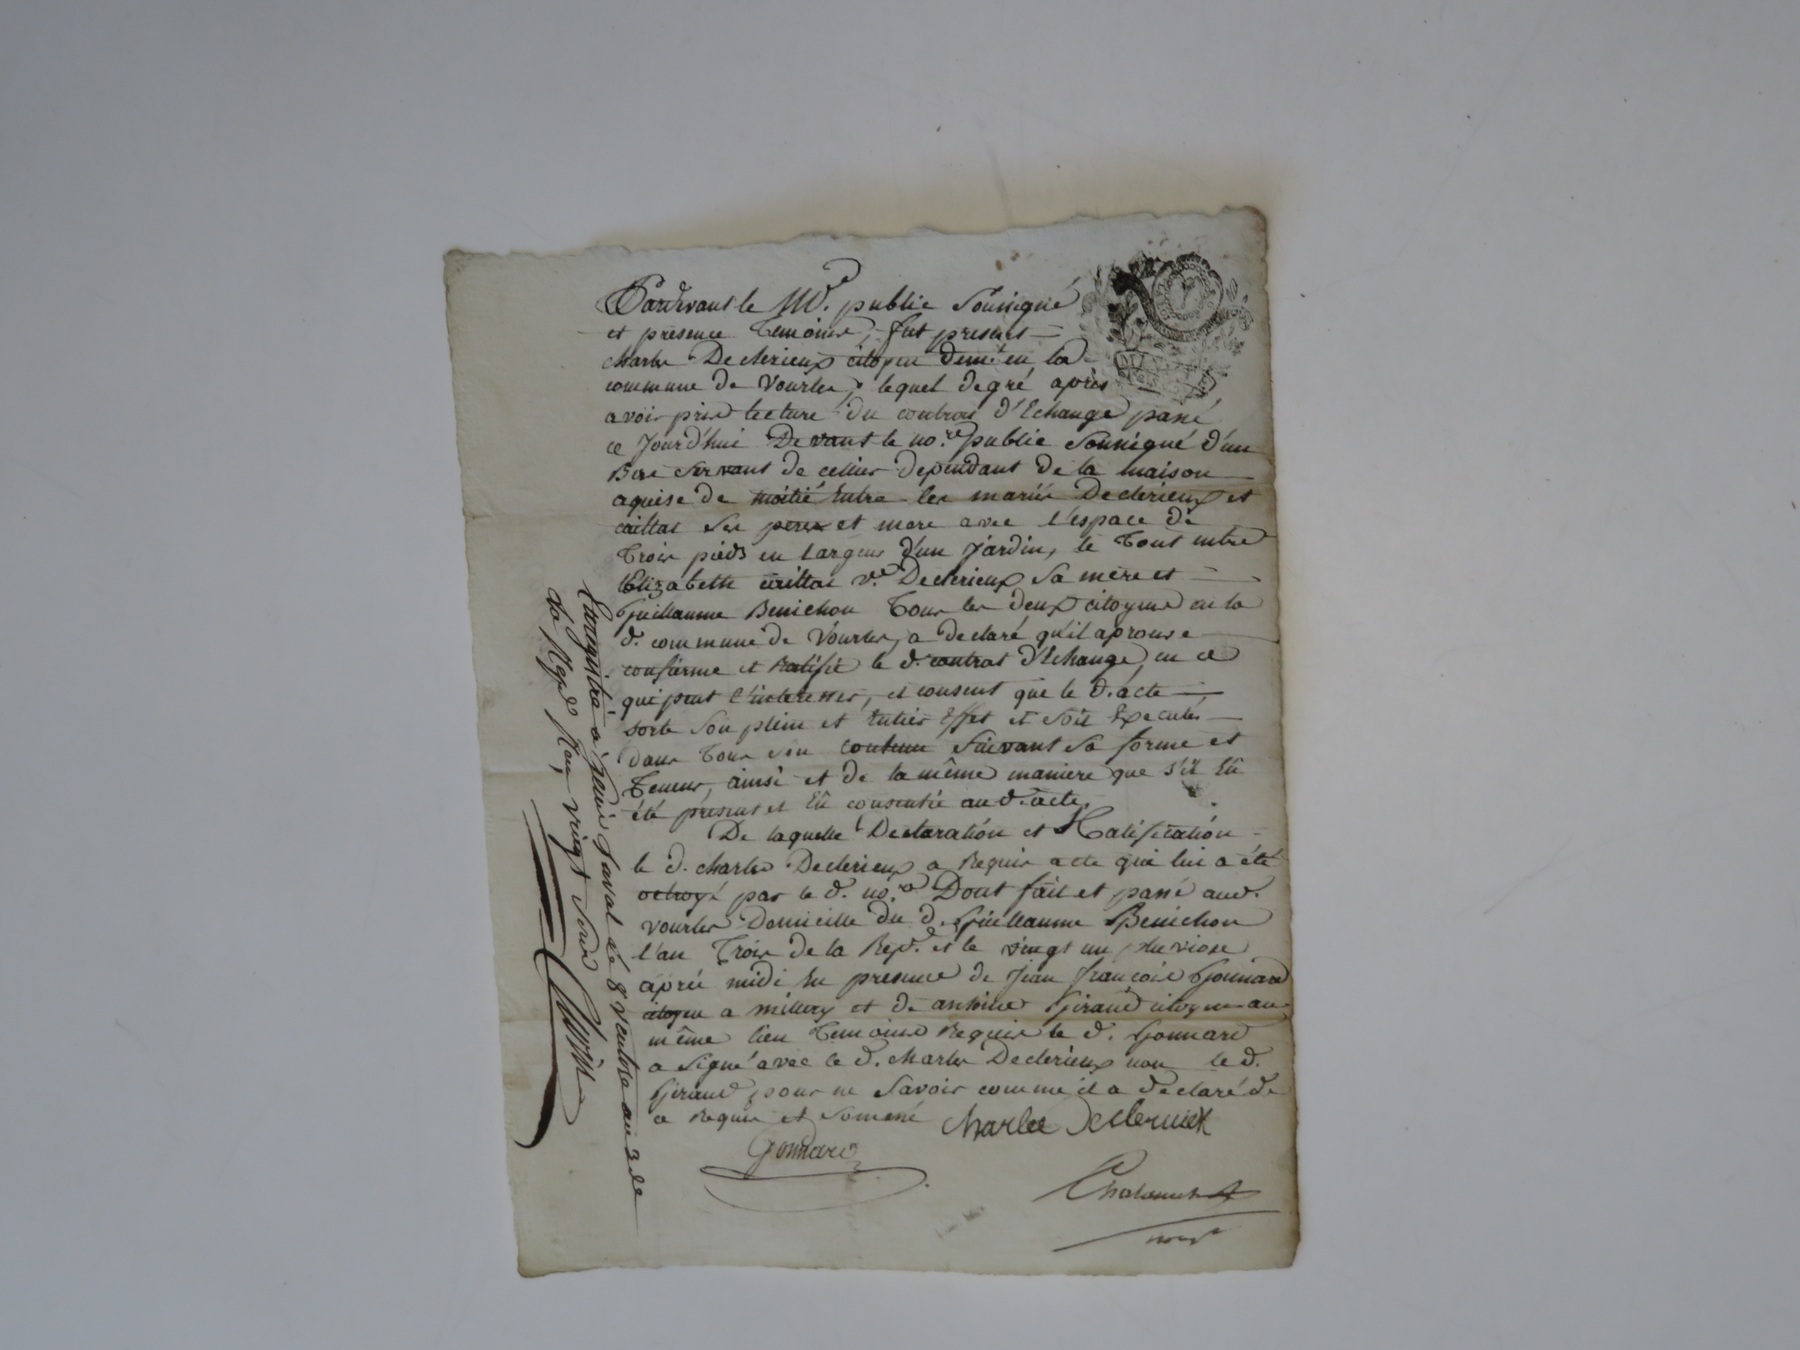 Pardevant le Nre. public Soussigné
et presence Temoins, fut present
charles Declerieux citoyen demt. en la
commune de Vourles, lequel de gré après
avoir pris lecture du contrat d'Echange passé
ce Jourd'hui Devant le no.re public Soussigné d'un
Bas Servant de cellier dependant de la maison
aquise de moitié Entre les mariés Declerieux et
caillat ses peres et mere avec l'espace de
Trois pieds en largeur d'un Jardin, le Tout entre
Elizabeth caillat v.e Declerieux Sa mere et
Guillaume Benichon Tous les deux citoyens en la
d. commune de Vourles, a declaré qu'il aprouve
confirme et Ratifie le d. contrat d'Echange, en ce
qui peut l'interesser, et consent que le d. acte
sorte Son plein et Entier Effet et soit Executés
dans Tous son contenu Suivant Sa forme et
Teneur, ainsi et de la même maniere que s'il Eû
été présent et Eû consentie au d. acte.
De laquelle Declaration et Ratification
le d. charles Declerieux a Requis acte qui lui a été
octroyé par le d. no.re Dont fait et passé aud.
vourles Domicille du d. Guillaume Benichon
l'an Trois de la Rep. et le vingt un pluviose
après midi En presence de Jean françois Gonnard
citoyen a millery et de antoine Giraud citoyen au
même lieu Temoins Requis le d. Gonnard
a Signé avec le d. charles Declerieux non le d.
Giraud pour ne Savoir comme il a declaré de
ce Requis et Sommé charles Declerieux
Gonnard
Enregistré a Genis Laval le 8 ventose an 3 de
la Rep. Reçu vingt sous